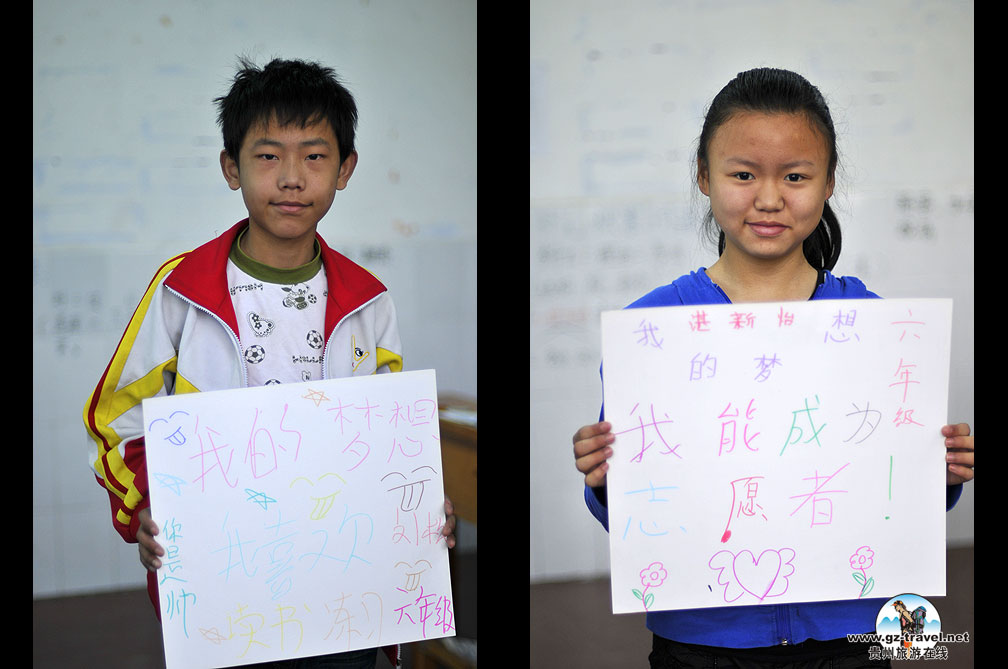 我的梦想
我喜欢
读书
你是人帅
六年级
我 湛新怡 想
的梦
六年级
我能成为
志愿者!
www.gz-travel.net
贵州旅游在线